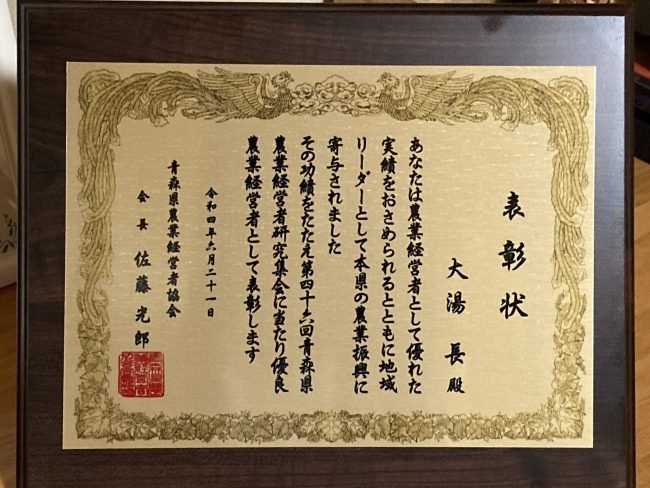 表彰状
大湯 長 殿
あなたは農業経営者として優れた
実績をおさめられるとともに地域
リーダーとして本県の農業振興に
寄与されました
その功績をたたえ第四十六回青森県
農業経営者研究集会に当たり優良
農業経営者として表彰します
令和四年六月二十一日
青森県農業経営者協会
会長 佐藤光郎